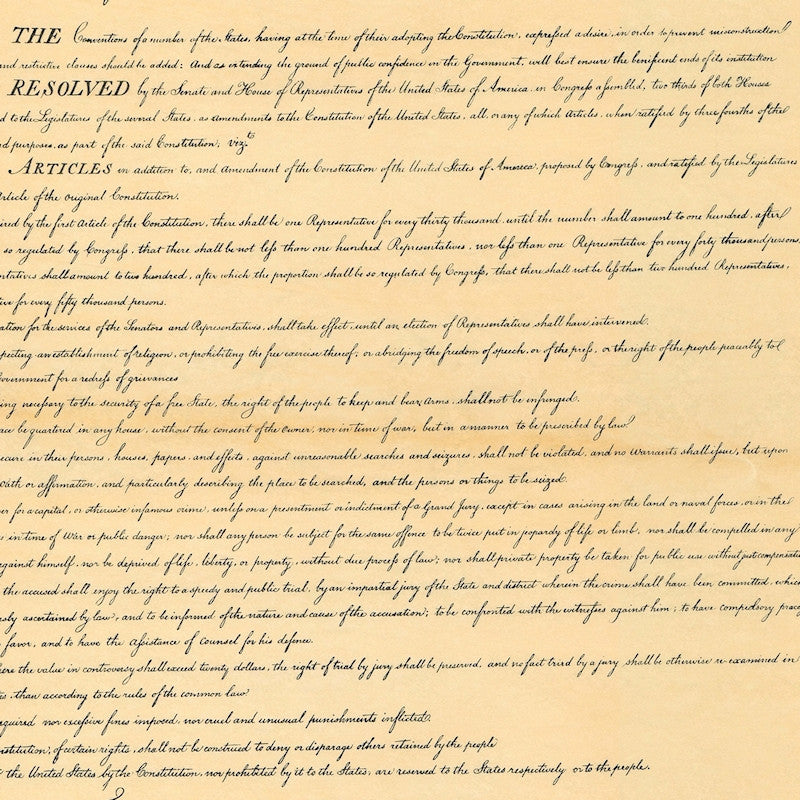 THE Conventions of a number of the States, having at the time of their adopting the Constitution, expressed a desire, in order to prevent misconstruction
and restrictive clauses should be added: And as extending the ground of public confidence in the Government, will best ensure the beneficent ends of its institution
RESOLVED by the Senate and House of Representatives of the United States of America, in Congress assembled, two thirds of both Houses
d to the Legislatures of the several States, as amendments to the Constitution of the United States, all, or any of which Articles, when ratified by three fourths of the
d purposes, as part of the said Constitution; vizt.
ARTICLES in addition to, and Amendment of the Constitution of the United States of America, proposed by Congress, and ratified by the Legislatures
Article of the original Constitution.
ired by the first Article of the Constitution, there shall be one Representative for every thirty thousand, until the number shall amount to one hundred, after
so regulated by Congress, that there shall be not less than one hundred Representatives, nor less than one Representative for every forty thousand persons,
ntatives shall amount to two hundred, after which the proportion shall be so regulated by Congress, that there shall not be less than two hundred Representatives,
ive for every fifty thousand persons.
ation for the services of the Senators and Representatives, shall take effect, until an election of Representatives shall have intervened.
pecting an establishment of religion, or prohibiting the free exercise thereof; or abridging the freedom of speech, or of the press, or the right of the people peaceably to
Government for a redress of grievances
ing necessary to the security of a free State, the right of the people to keep and bear Arms, shall not be infringed.
ace be quartered in any house, without the consent of the Owner, nor in time of war, but in a manner to be prescribed by law.
ecure in their persons, houses, papers, and effects, against unreasonable searches and seizures, shall not be violated, and no Warrants shall issue, but upon
Oath or affirmation, and particularly describing the place to be searched, and the persons or things to be seized.
er for a capital, or otherwise infamous crime, unless on a presentment or indictment of a Grand Jury, except in cases arising in the land or naval forces, or in the
in time of War or public danger; nor shall any person be subject for the same offence to be twice put in jeopardy of life or limb, nor shall be compelled in any
against himself, nor be deprived of life, liberty, or property, without due process of law; nor shall private property be taken for public use without just compensation
the accused shall enjoy the right to a speedy and public trial, by an impartial jury of the State and district wherein the crime shall have been committed, which
usly ascertained by law, and to be informed of the nature and cause of the accusation; to be confronted with the witnesses against him; to have compulsory proce
favor, and to have the Assistance of Counsel for his defence.
ere the value in controversy shall exceed twenty dollars, the right of trial by jury shall be preserved, and no fact tried by a jury shall be otherwise re-examined in
es, than according to the rules of the common law.
equired nor excessive fines imposed, nor cruel and unusual punishments inflicted.
nstitution, of certain rights, shall not be construed to deny or disparage others retained by the people
the United States by the Constitution, nor prohibited by it to the States, are reserved to the States respectively or to the people.